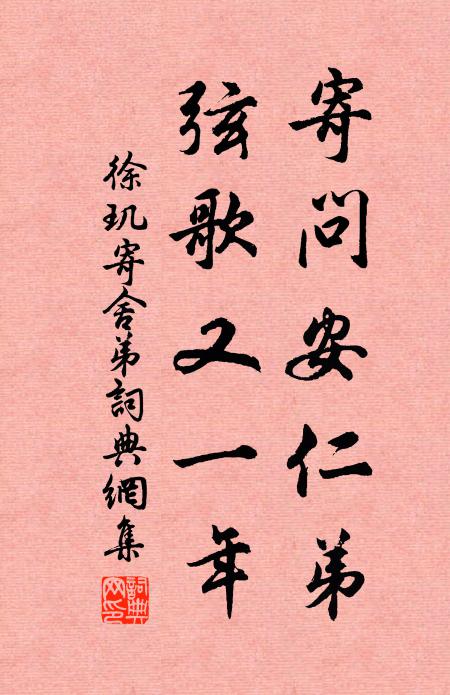 寄問安仁弟
弦歌又一年
徐玑寄舍弟詞典網集
詞典網印